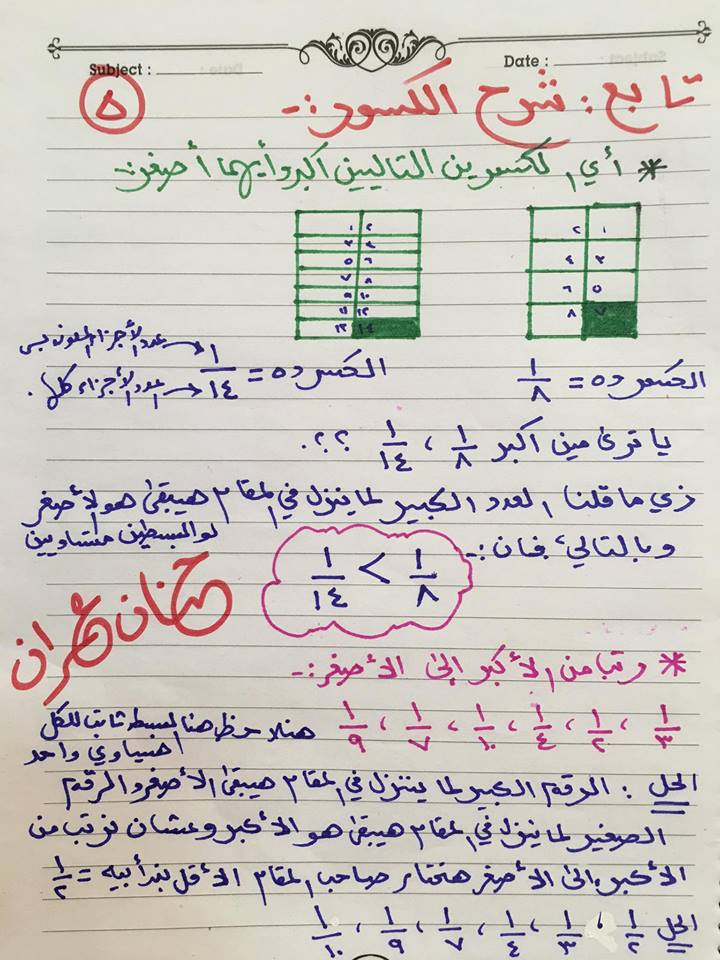 Subject : Date :
تابع : شرح الكسور :-
٥
* أي الكسرين التاليين اكبر وأيهما أصغر :-
١ ٢
٣ ٤
٥ ٦
٧ ٨
٩ ١٠
١١ ١٢
١٣ ١٤
٢ ١
٤ ٣
٦ ٥
٨ ٧
الكسر ده = ١/٨
الكسر ده = ١/١٤
عدد الأجزاء
عدد الأجزاء كلها .
يا ترى مين اكبر ١/٨ ، ١/١٤ ؟؟ .
زي ما قلنا العدد الكبير لما ينزل في المقام هيبقى هو الأصغر
لو البسطين متساويين
وبالتالي فإن :-
١/٨ > ١/١٤
حنان عمران
* رتب من الأكبر إلى الأصغر :-
١/٣ ، ١/٢ ، ١/٤ ، ١/١٠ ، ١/٧ ، ١/٩
هنلاحظ هنا البسط ثابت للكل
بيساوي واحد
الحل : الرقم الكبير لما ينزل في المقام هيبقى الأصغر والرقم
الصغير لما ينزل في المقام هيبقى هو الأكبر وعشان نرتب من
الأكبر إلى الأصغر هنختار صاحب المقام الأقل نبدأ بيه = ١/٢
الحل ١/٢ ، ١/٣ ، ١/٤ ، ١/٧ ، ١/٩ ، ١/١٠